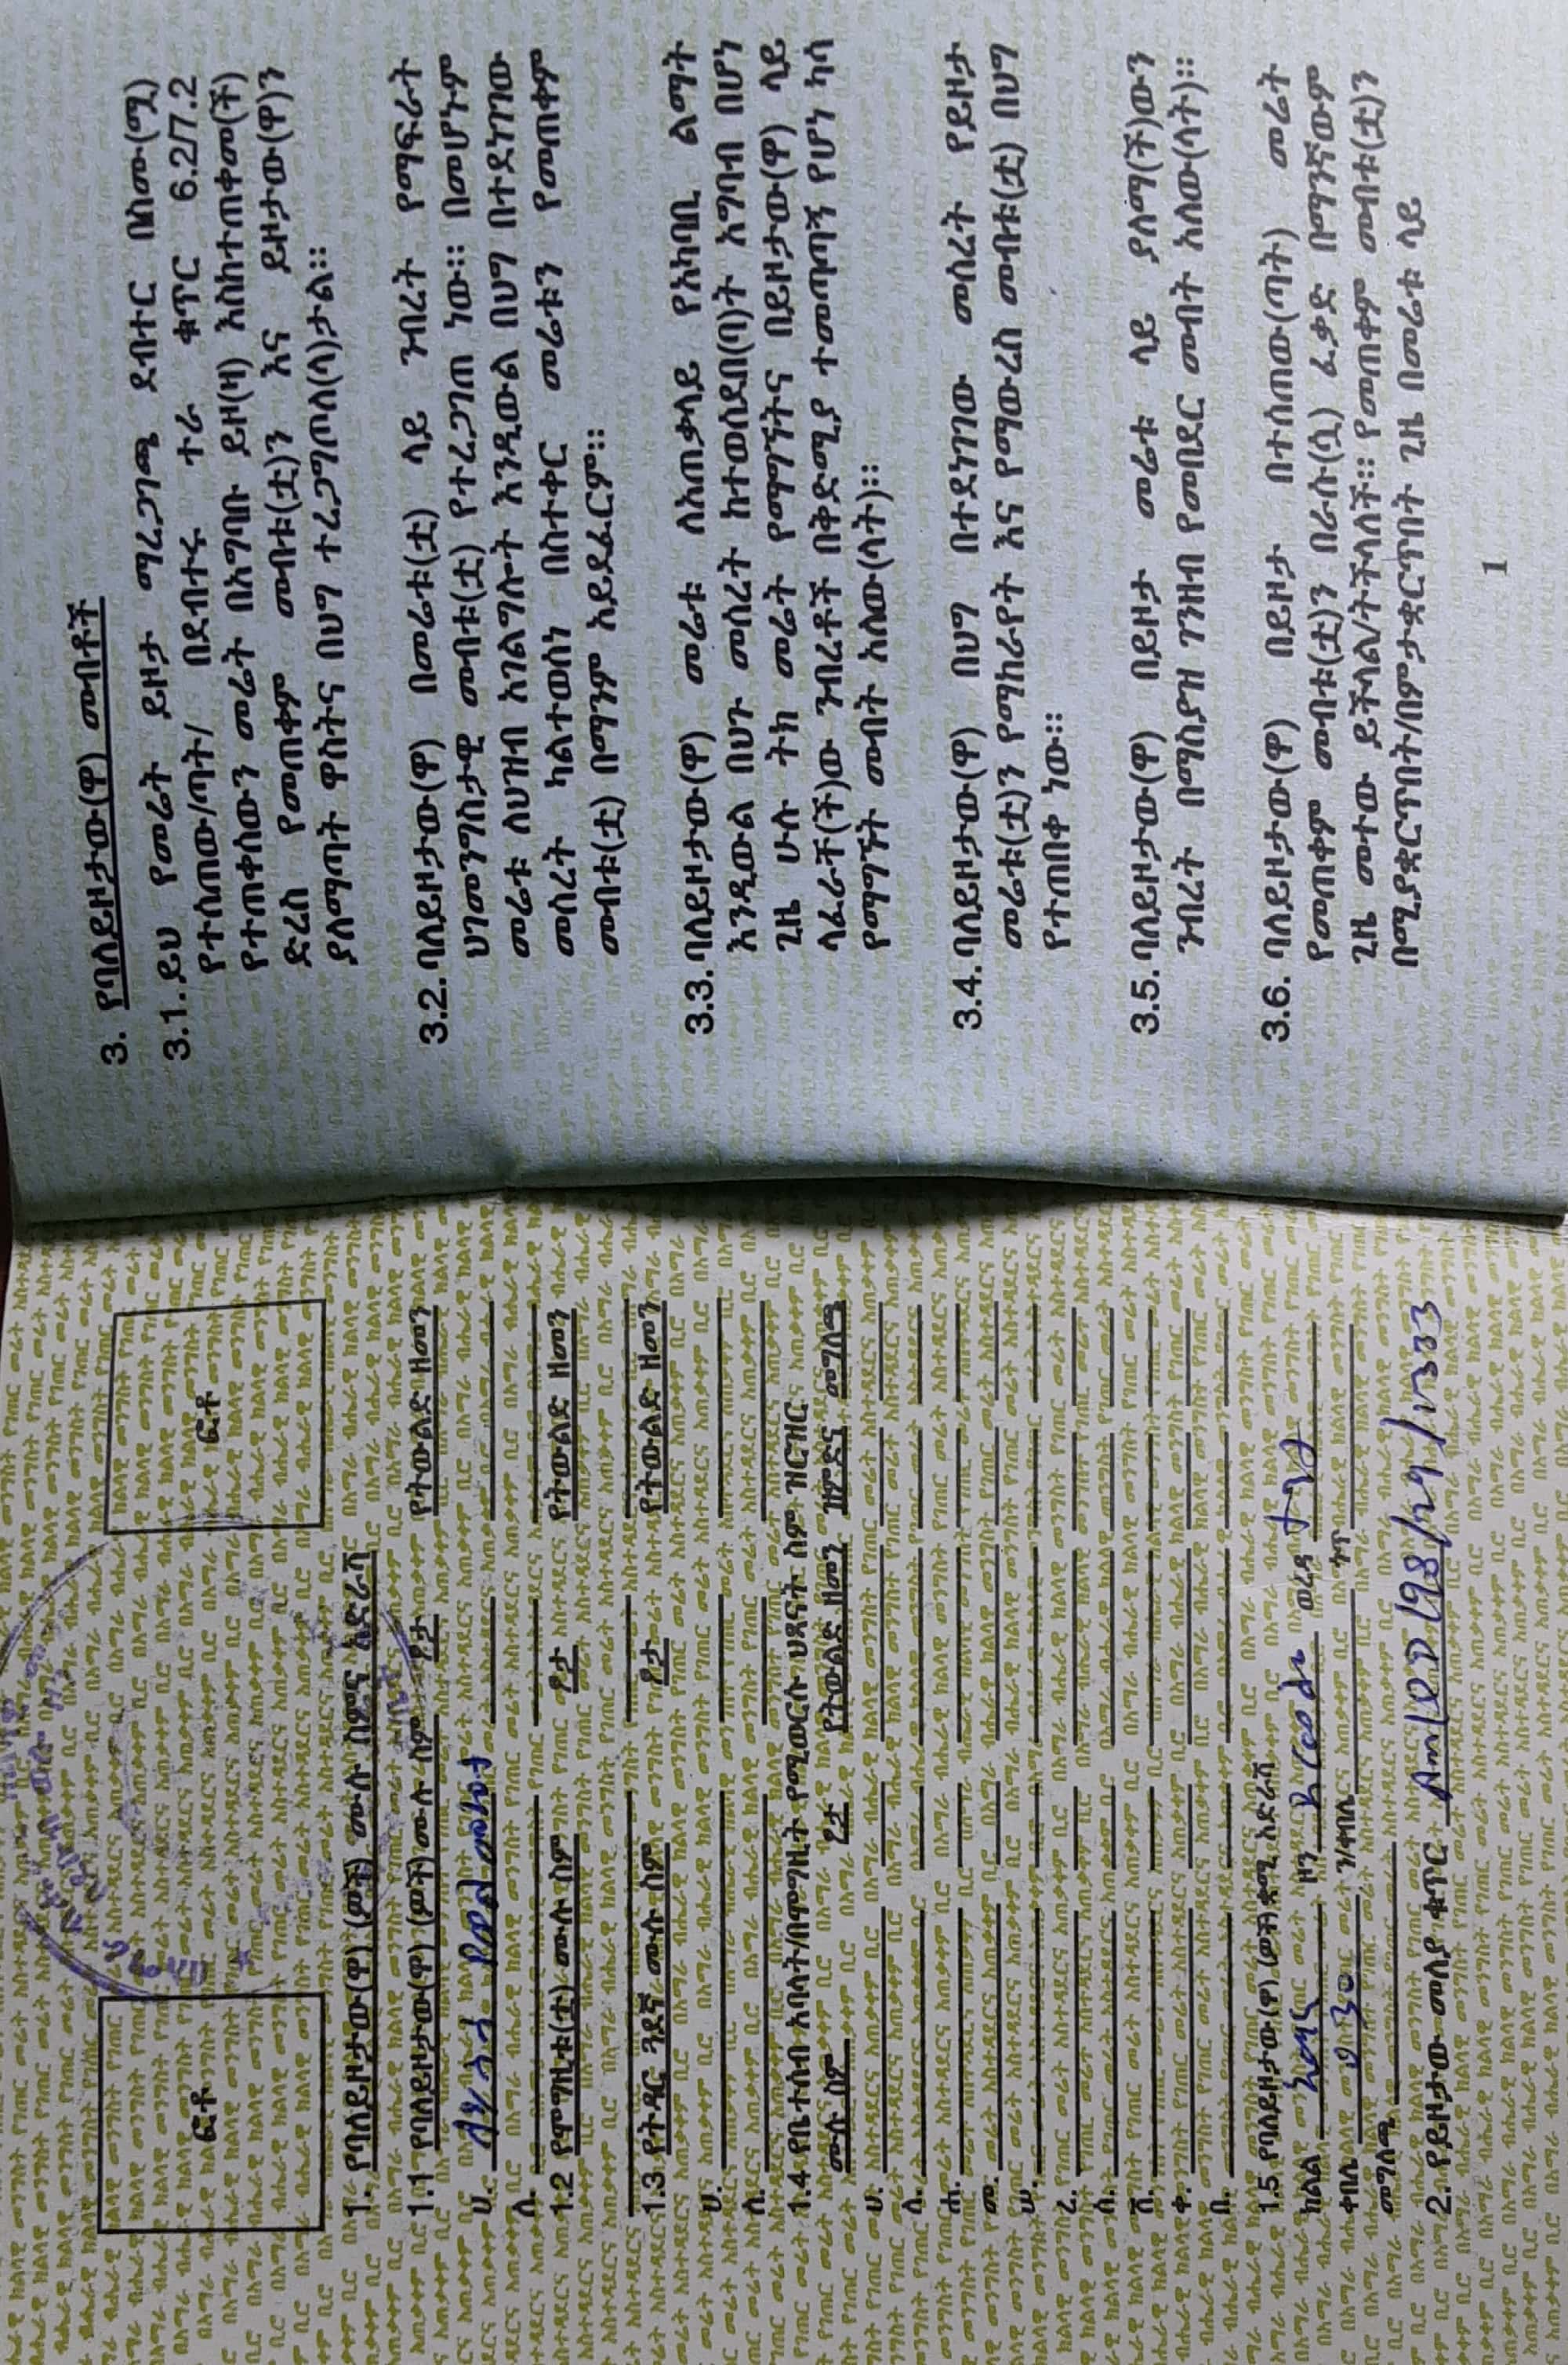 ፎቶ
ፎቶ
1. የባለይዞታው(ዋ) (ዎች) ሙሉ ስምና አድራሻ
1.1 የባለይዞታው(ዋ) (ዎች) ሙሉ ስም ፆታ የትውልድ ዘመን
ሀ.
ለ.
1.2 የሞግዚቱ(ቷ) ሙሉ ስም ፆታ የትውልድ ዘመን
1.3 የትዳር ጓደኛ ሙሉ ስም ፆታ የትውልድ ዘመን
ሀ.
ለ.
1.4 የቤተሰብ አባላት/በሞግዚት የሚወርሱ ህጻናት ስም ዝርዝር
ሙሉ ስም ፆታ የትውልድ ዘመን ዝምድና መግለጫ
ሀ.
ለ.
ሐ.
መ.
ሠ.
ረ.
ሰ.
ሸ.
ቀ.
በ.
1.5 የባለይዞታው(ዋ) (ዎች) ቋሚ አድራሻ
ክልል አማራ ዞን ወረዳ
ቀበሌ 030 ን/ቀበሌ ጎጥ
መግለጫ
2. የይዞታው መለያ ቁጥር
3. የባለይዞታው(ዋ) መብቶች
3.1. ይህ የመሬት ይዞታ ማረጋገጫ ደብተር በስሙ(ሟ)
የተሰጠው/ጣት/ በደብተሩ ተራ ቁጥር 6.2/7.2
የተጠቀሰውን መሬት በአግባቡ ይዞ(ዛ) እስከተጠቀመ(ች)
ድረስ የመጠቀም መብቱ(ቷ)ን እና ይዞታው(ዋ)ን
ያለማጣት ዋስትና በህግ ተረጋግጦለ(ላ)ታል፡፡
3.2. ባለይዞታው(ዋ) በመሬቱ(ቷ) ላይ ንብረት የማፍራት
ህገመንግስታዊ መብቱ(ቷ) የተረጋገጠ ነው፡፡ በመሆኑም
መሬቱ ለህዝብ አገልግሎት እንዲውል በህግ በተደነገገው
መሰረት ካልተወሰነ በስተቀር መሬቱን የመጠቀም
መብቱ(ቷ) በማንም አይደፈርም፡፡
3.3. ባለይዞታው(ዋ) መሬቱ ለአጠቃላይ የአካባቢ ልማት
እንዲውል በህጉ መሰረት ከተወሰደበ(ባ)ት አግባብ በሆነ
ጊዜ ሁሉ ትክ መሬት የማግኘትና በይዞታው(ዋ) ላይ
ላፈራቸ(ች)ው ንብረቶች በቅድሚያ ተመጣጣኝ የሆነ ካሳ
የማግኘት መብት አለው(ላት)፡፡
3.4. ባለይዞታው(ዋ) በህግ በተደነገገው መሰረት የይዞታ
መሬቱ(ቷ)ን የማከራየት እና የማውረስ መብቱ(ቷ) በህግ
የተጠበቀ ነው፡፡
3.5. ባለይዞታው(ዋ) በይዞታ መሬቱ ላይ ያለማ(ች)ውን
ንብረት በማስያዝ ገንዘብ የመበደር መብት አለው(ላት)፡፡
3.6. ባለይዞታው(ዋ) በይዞታ በተሰጠው(ጣት) መሬት
የመጠቀም መብቱ(ቷ)ን በራሱ(ሷ) ፈቃድ በማንኛውም
ጊዜ መተው ይችላል/ትችላለች፡፡ የመጠቀም መብቱ(ቷ)ን
በሚያቋርጥበት/በምታቋርጥበት ጊዜ በመሬቱ ላይ
1